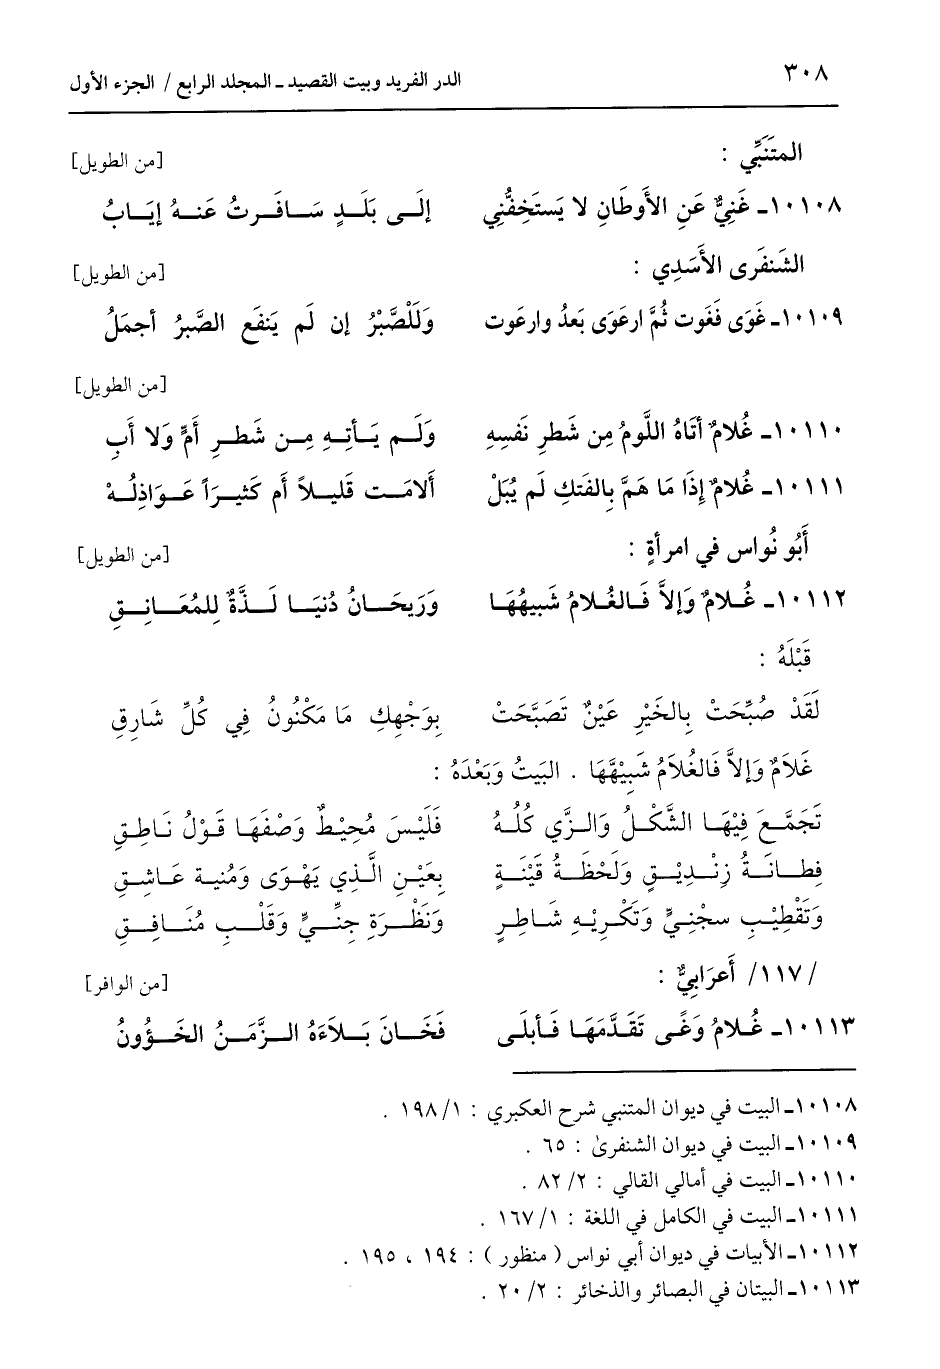 ٣٠٨ الدر الفريد وبيت القصيد ـ المجلد الرابع / الجزء الأول
المتَنَبِّي : [من الطويل]
١٠١٠٨ـ غَنِيٌّ عَنِ الأَوطَانِ لا يَستَخِفُّنِي إلَى بَلَدٍ سَافَرتُ عَنهُ إيَابُ
الشَنفَرى الأَسَدِي : [من الطويل]
١٠١٠٩ـ غَوَى فَغَوت ثُمَّ ارعَوَى بَعدُ وارعَوت وَلَلْصَّبْرُ إن لَم يَنفَع الصَّبرُ أجمَلُ
[من الطويل]
١٠١١٠ـ غُلامٌ أتَاهُ اللَّومُ مِن شَطرِ نَفسِهِ وَلَم يَأتِهِ مِن شَطرِ أمٍّ وَلا أَبِ
١٠١١١ـ غُلامٌ إِذَا مَا هَمَّ بِالفَتكِ لَم يُبَلْ ألامَت قَلِيلاً أم كَثيرَاً عَوَاذِلُهْ
أَبُو نُواس في امرأةٍ : [من الطويل]
١٠١١٢ـ غُلامٌ وَإلاَّ فَالغُلامُ شَبِيهُهَا وَرَيحَانُ دُنيَا لَذَّةٌ لِلمُعَانِقِ
قَبْلَهُ :
لَقَدْ صُبِّحَتْ بِالخَيْرِ عَيْنٌ تَصَبَّحَتْ بِوَجْهِكِ مَا مَكْنُونُ فِي كُلِّ شَارِقِ
غَلاَمٌ وَإلاَّ فَالغُلاَمُ شَبِيْهَّهَا . البَيتُ وَبَعْدَهُ :
تَجَمَّعَ فِيْهَا الشَّكْلُ وَالزَّي كُلُهُ فَلَيْسَ مُحِيْطٌ وَصْفَهَا قَوْلُ نَاطِقِ
فِطَانَةُ زِنْدِيْقٍ وَلَحْظَةُ قَيْنَةٍ بِعَيْنِ الَّذِي يَهْوَى وَمُنية عَاشِقِ
وَتَقْطِيْبِ سجْنِيٍّ وَتَكْرِيْهِ شَاطِرٍ وَنَظْرَةِ جِنِّيٍّ وَقَلْبِ مُنَافِقِ
/١١٧/ أَعرَابِيٌّ : [من الوافر]
١٠١١٣ـ غُلامُ وَغًى تَقَدَّمَهَا فَأبلَى فَخَانَ بَلاَءَهُ الزَّمَنُ الخَؤُونُ
١٠١٠٨ـ البيت في ديوان المتنبي شرح العكبري : ١/ ١٩٨ .
١٠١٠٩ـ البيت في ديوان الشنفرىٰ : ٦٥ .
١٠١١٠ـ البيت في أمالي القالي : ٢/ ٨٢ .
١٠١١١ـ البيت في الكامل في اللغة : ١/ ١٦٧ .
١٠١١٢ـ الأبيات في ديوان أبي نواس ( منظور ) : ١٩٤ ، ١٩٥ .
١٠١١٣ـ البيتان في البصائر والذخائر : ٢/ ٢٠ .